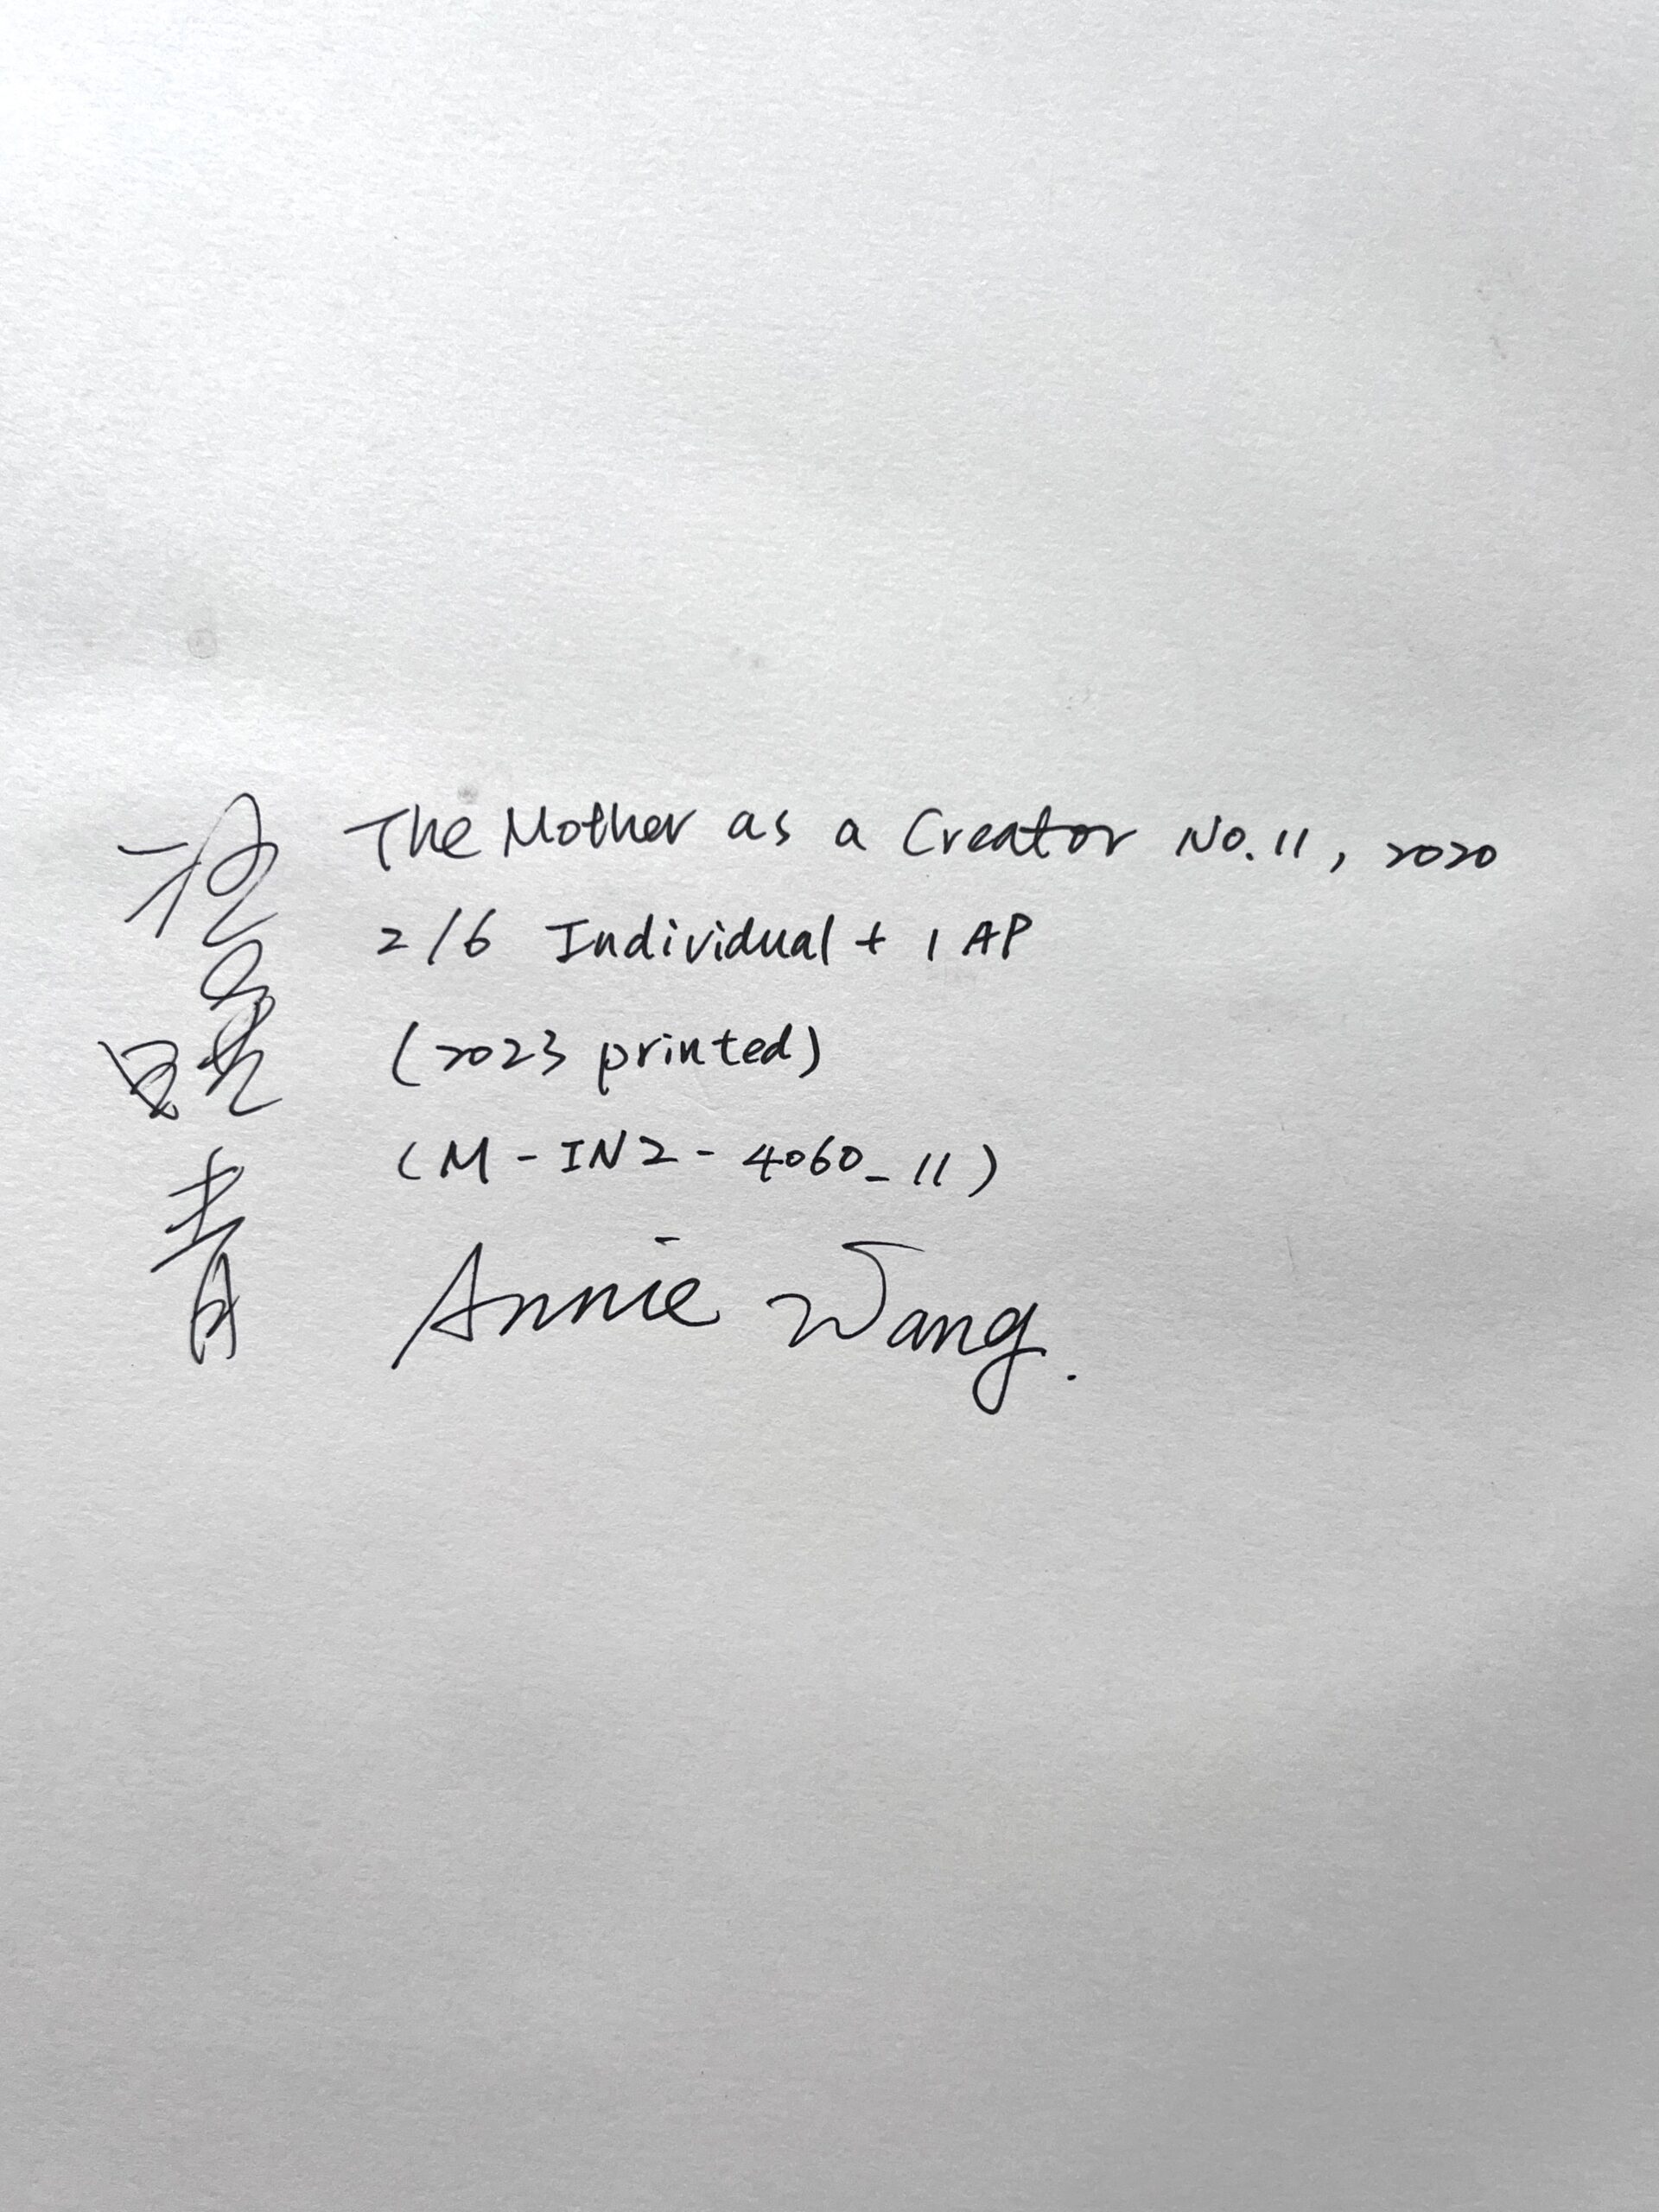 The Mother as a Creator No.11, 2020
2/6 Individual + 1 AP
(2023 printed)
(M-IN2-4060_11)
Annie Wang.
曉青